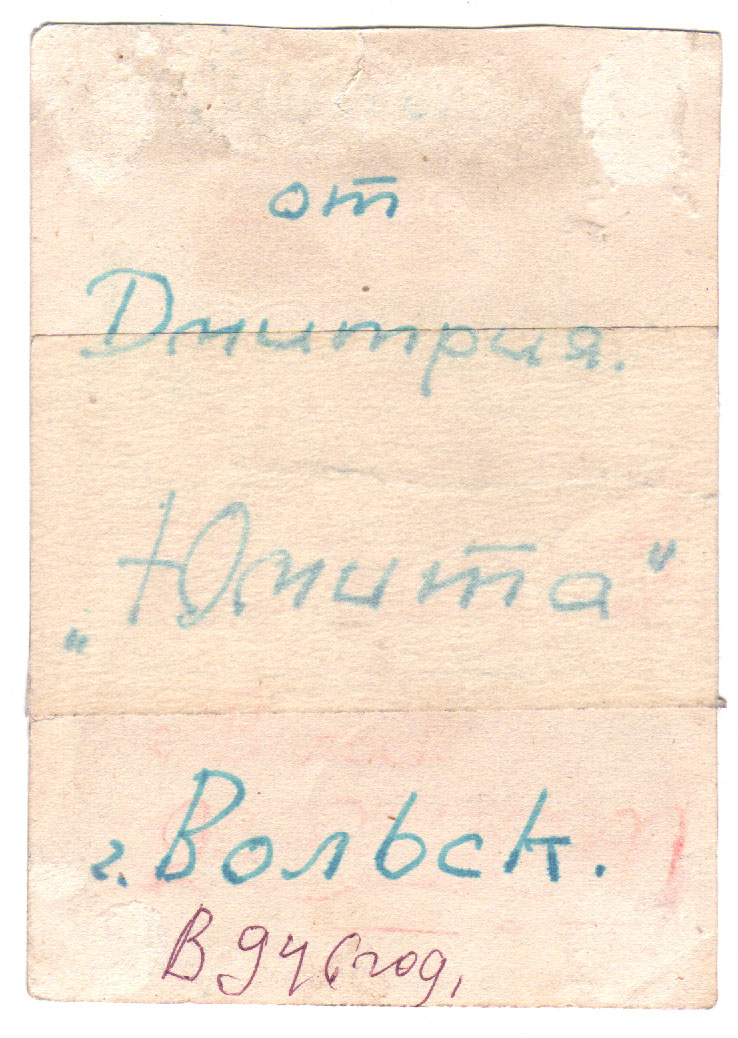 от
Дмитрия.
„Юнита“
г. Вольск.
В 946 год,